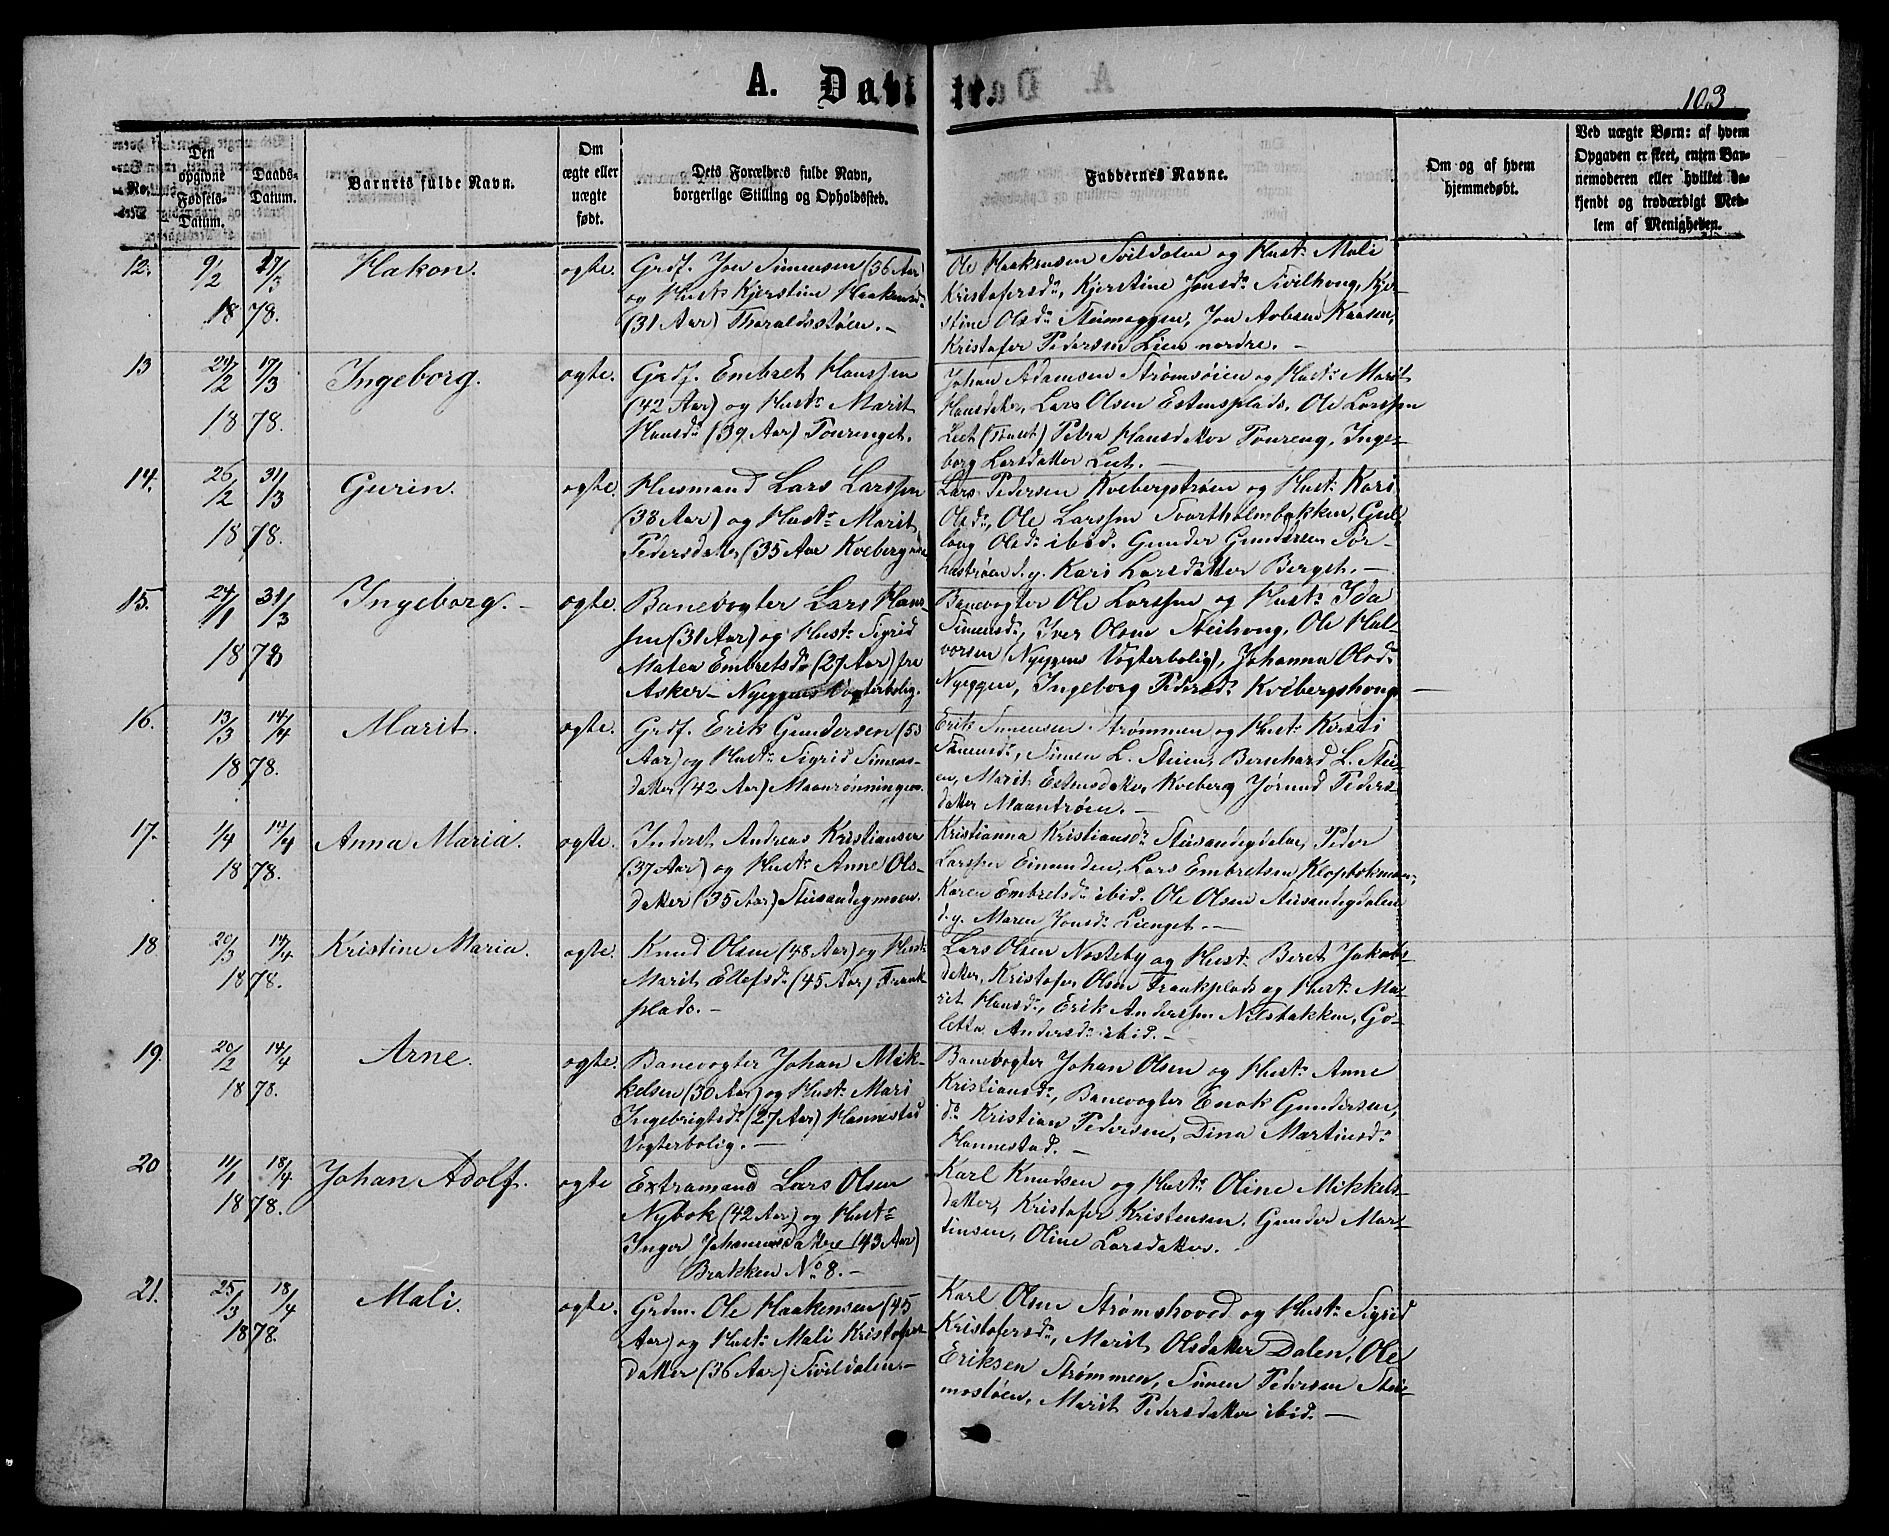 A. Døbte.
103
No.
Den opgivne Fødsels-Datum.
Daabs-Datum.
Barnets fulde Navn.
Om ægte eller uægte født.
Dets Forældres fulde Navn, borgerlige Stilling og Opholdssted.
Faddernes Navne.
Om og af hvem hjemmedøbt.
Ved uægte Børn: af hvem Opgaven er skeet, enten Barnemoderen eller hvilket bekjendt og troværdigt Medlem af Menigheden.
12. 9/2 17/3 1878. Hakon. ægte.
Grdf. Jon Simensen (36 Aar)
og Hust: Kjerstine Haakensd:
(31 Aar) Tharaldsstøen.-
Ole Haakensen Sivildalen og Hust: Mali
Kristofersd:, Kjerstine Jonsd: Sivilhoug, Kje-
stine Olsd: Steimoggen, Jon Kaasen,
Kristofer Pedersen Lien nordre.-
13 24/2 17/3 1878. Ingeborg. ægte.
Grdf. Embret Hanssen
(42 Aar) og Hust: Marit
Hansd: (39 Aar) Tourenget.
Johan Adamsen Strømsøien og Hust: Marit
Hansdatter, Lars Olsen Estensplads, Ole Larssen
Leet (Tonset) Petra Hansdatter Toureng, Inge-
borg Larsdatter Leet.-
14. 26/2 31/3 1878. Gurin. ægte.
Husmand Lars Larssen
(38 Aar) og Hust: Marit
Pedersdatter (35 Aar Kveberg
Lars Pedersen Kvebergstrøen og Hust: Kari
Olsd:, Ole Larssen Svartholmbakken, Gul-
loug Olsd: ibid. Gunder Gundersen Tor-
hustrøen d.y. Kari Larsdatter Berget.-
15. 24/1 31/3 1878 Ingeborg.- ægte.
Banevogter Lars Hans-
sen (31 Aar) og Hust: Sigrid
Matea Embretsd: (27 Aar) fra
Asker - Nyeggens Vogterbolig.
Banevogter Ole Larssen og Hust: Ida
Simensd:, Iver Olsen Steihoug, Ole Hal-
vorsen (Nyeggens Vogterbolig), Johanna Olsd:
Nyeggen, Ingeborg Pedersd: Kvebergshoug-
16. 13/3 14/4 1878. Marit. ægte.
Grdf. Erik Gundersen (53
Aar) og Hust: Sigrid Simens-
datter (42 Aar) Maanrønningen.
Erik Simensen Strømmen og Hust: Kirsti
Simensd:, Simen L. Steien, Bernhard L. Stei-
en, Marit Estensdatter Kveberg Jørund Peders-
datter Maantrøen.-
17. 1/4 14/4 1878. Anna Maria. ægte.
Inderst Andreas Kristiansen
(37 Aar) og Hust: Anne Ols-
datter (35 Aar) Steisandegmoen.
Kristianna Kristiansd: Steisandegdalen, Peder
Larssen Eimunden, Lars Embretsen
Karen Embretsd: ibid. Ole Olsen Steisandegdalen
d.y. Maren Jonsd: Lienget.-
18 20/3 14/4 1878. Kristine Maria. ægte.
Knud Olsen (48 Aar) og Hust:
Marit Ellefsd: (45 Aar) Trank-
plads.-
Lars Olsen Nosteby og Hust: Beret Jakobs-
datter, Kristofer Olsen Trankplads og Hust: Ma-
rit Hansd:, Erik Anderssen Nilsbakken, Go-
letta Andersd: ibid.-
19. 20/2 14/4 1878. Arne. ægte.
Banevogter Johan Mik-
kelsen (30 Aar) og Hust: Mari
Ingebrigtsd: (27 Aar) Hannestad
Vogterbolig.-
Banevogter Johan Olsen og Hust: Anne
Kristiansd:, Banevogter Enok Gundersen,
d: Kristian Pedersen, Dina Martinsd:
Hannestad.-
20 11/1 18/4 1878. Johan Adolf. ægte
Extramand Lars Olsen
Nybok (42 Aar) og Hust:
Inger Johannesdatter (43 Aar)
Brakken No 8.-
Karl Knudsen og Hust: Oline Mikkels-
datter, Kristofer Kristensen, Gunder Mar-
tinsen, Oline Larsdatter.
21. 25/3 18/4 1878. Mali. ægte.
Grdm. Ole Haakensen (45
Aar) og Hust: Mali Kristofers-
datter (36 Aar) Sivildalen.-
Karl Olsen Strømshoved og Hust: Sigrid
Kristofersd:, Marit Olsdatter Dalen, Ole
Eriksen Strømmen, Simen Pedersen Stei-
mostøen, Marit Pedersdatter ibid.-